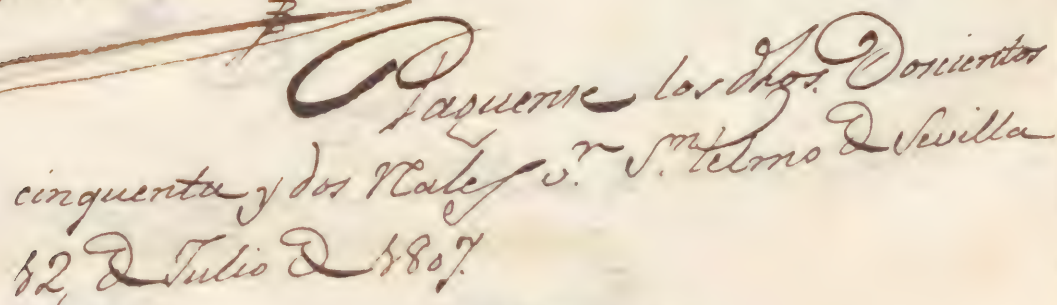 Paguense los dhos. Doscientos
cinquenta y dos Rales v.n S.n telmo de Sevilla
12, de Julio de 1807.